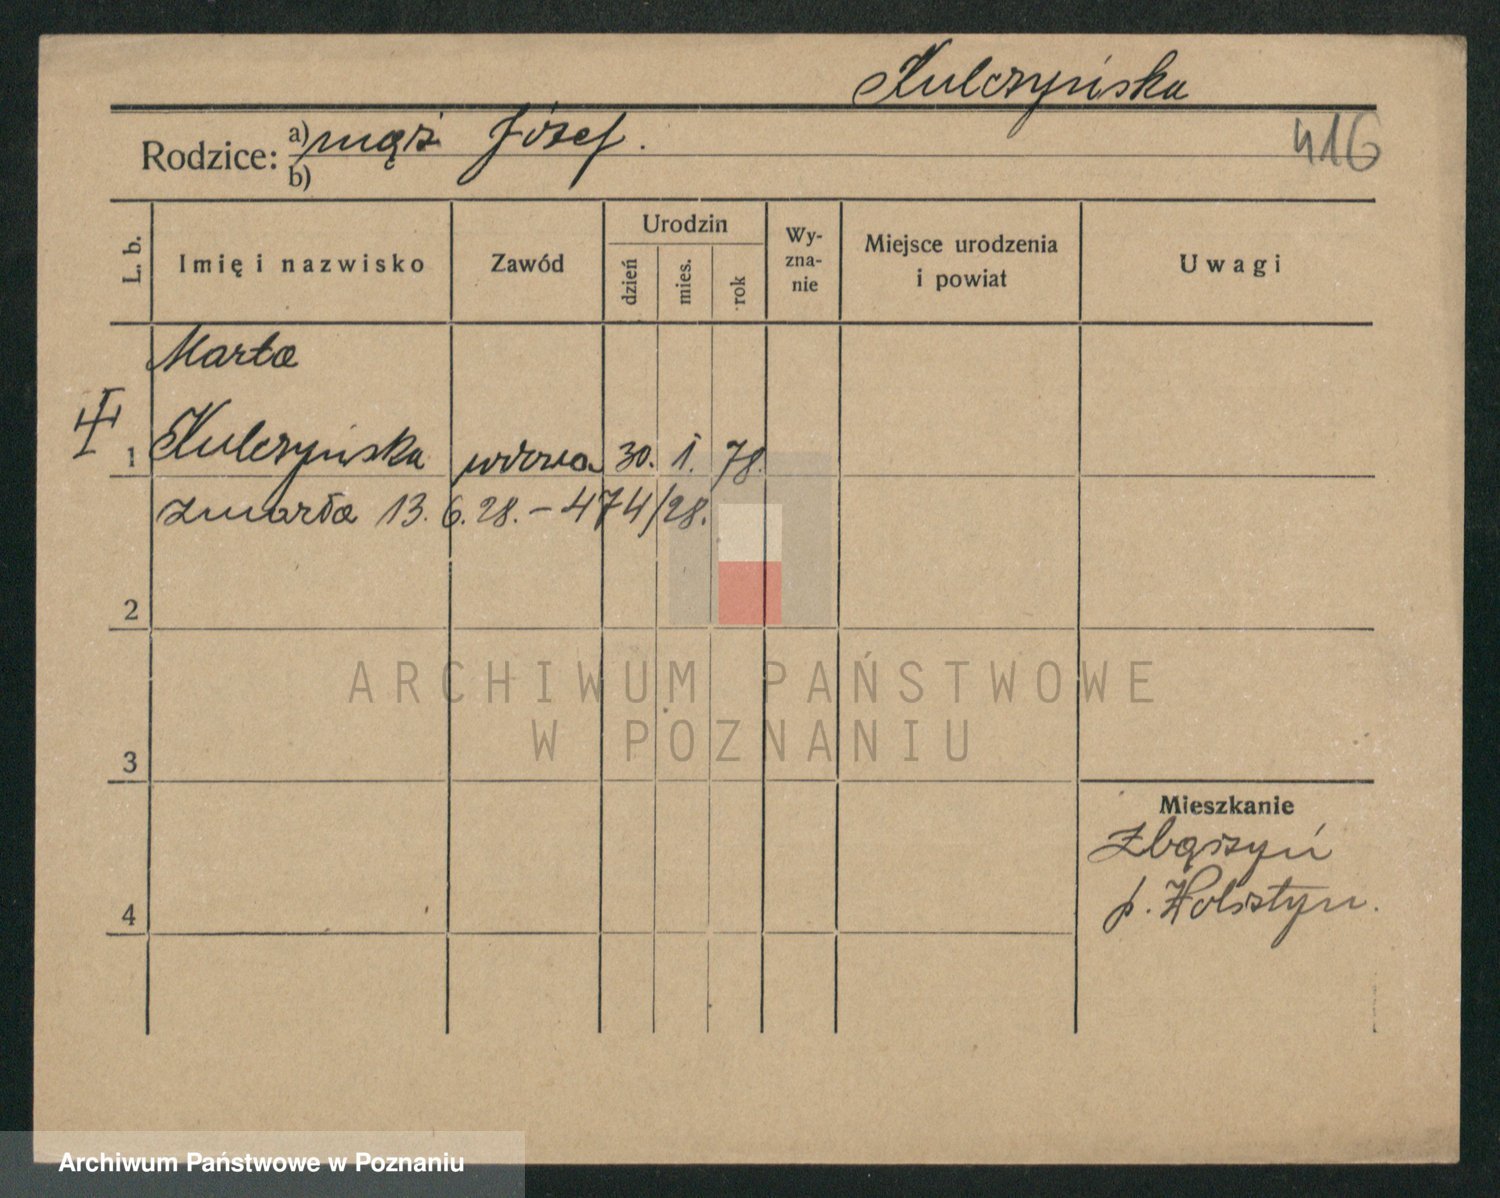 Kulczyńska
Rodzice: a) mąż Józef.
b)
416
L. b.
Imię i nazwisko
Zawód
Urodzin
dzień
mies.
rok
Wy-
zna-
nie
Miejsce urodzenia
i powiat
Uwagi
Marta
1 Kulczyńska wdowa 30. 1. 78.
zmarła 13. 6. 28. – 474/28.
2
ARCHIWUM PAŃSTWOWE
W POZNANIU
3
Mieszkanie
Zbąszyń
p. Wolsztyn.
4
Archiwum Państwowe w Poznaniu